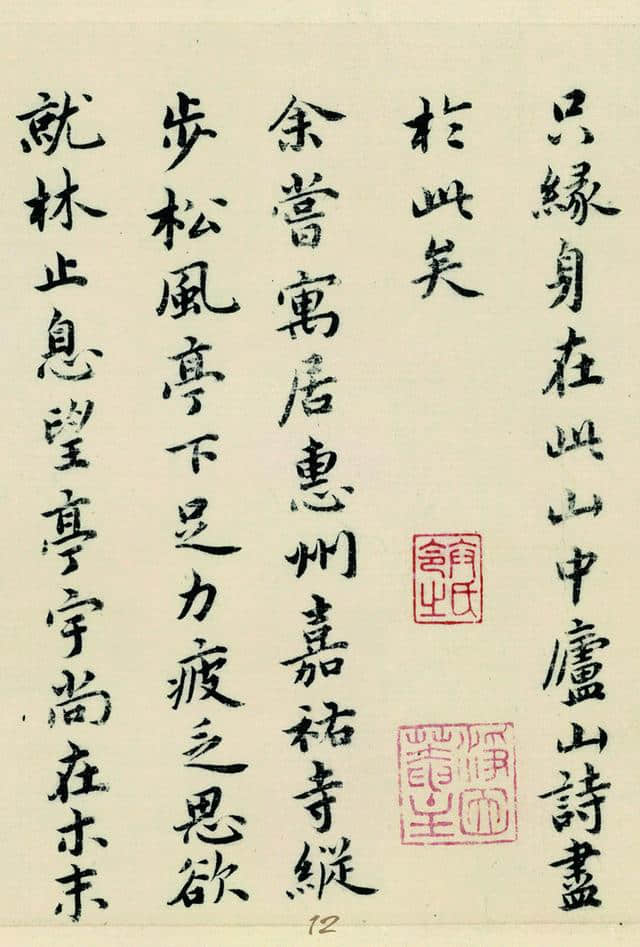 只緣身在此山中廬山詩盡
於此矣
余嘗寓居惠州嘉祐寺縱
步松風亭下足力疲乏思欲
就林止息望亭宇尚在木末
12